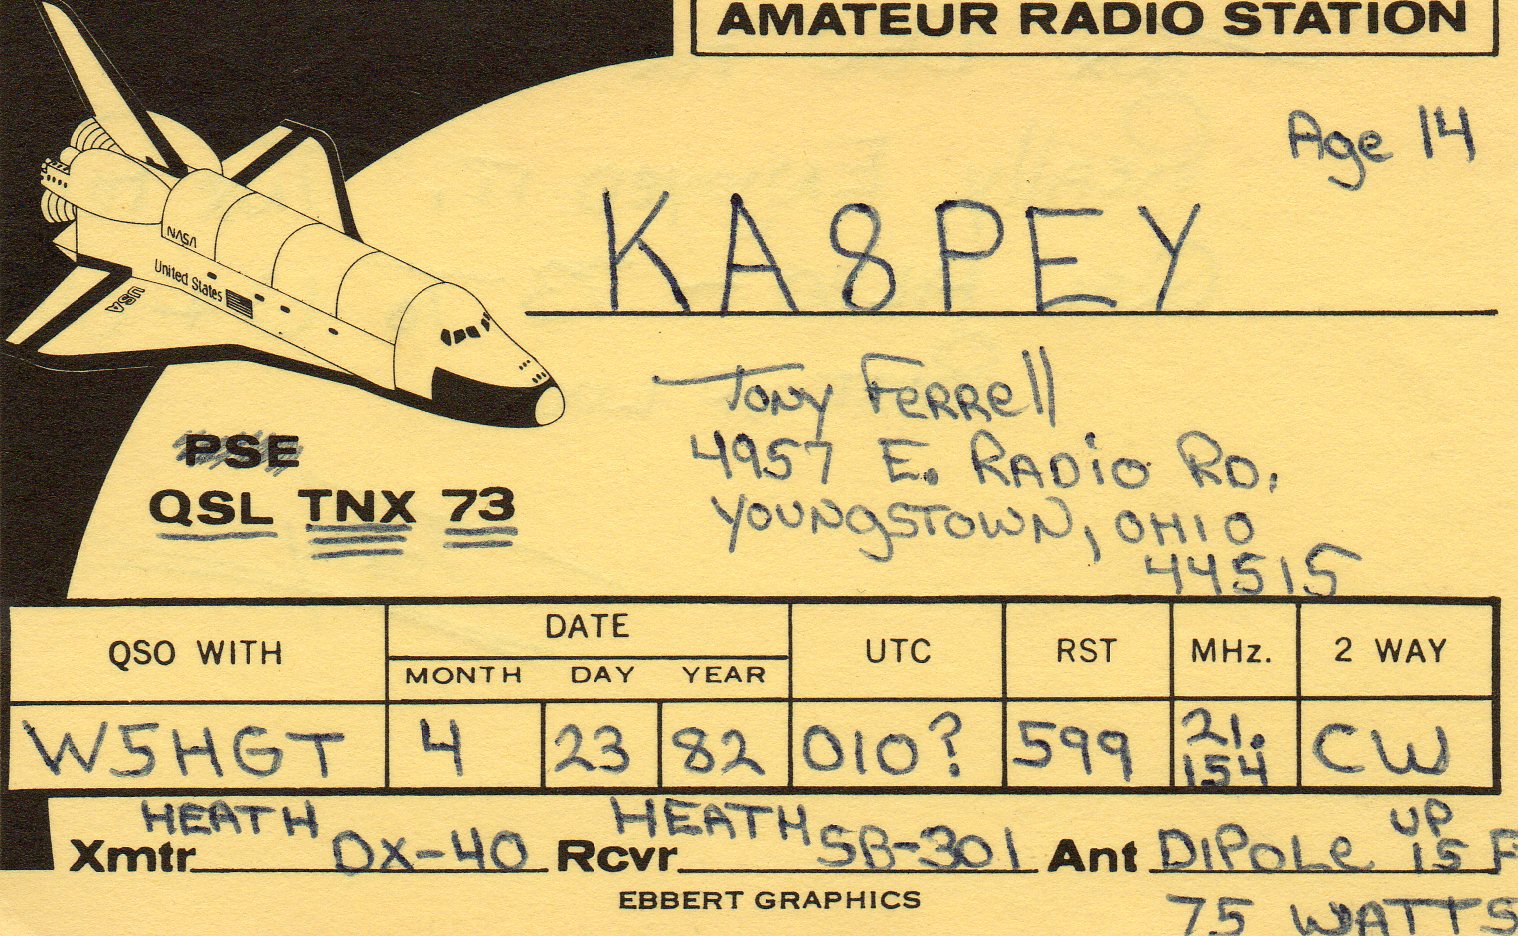 AMATEUR RADIO STATION
Age 14
KA8PEY
NASA
United States
USA
Tony Ferrell
4957 E. Radio Rd.
Youngstown, Ohio
44515
PSE
QSL TNX 73
QSO WITH DATE UTC RST MHz. 2 WAY
MONTH DAY YEAR
W5HGT 4 23 82 010? 599 21.154 CW
Xmtr HEATH DX-40 Rcvr HEATH SB-301 Ant DIPOLE UP 15 F
EBBERT GRAPHICS
75 WATTS